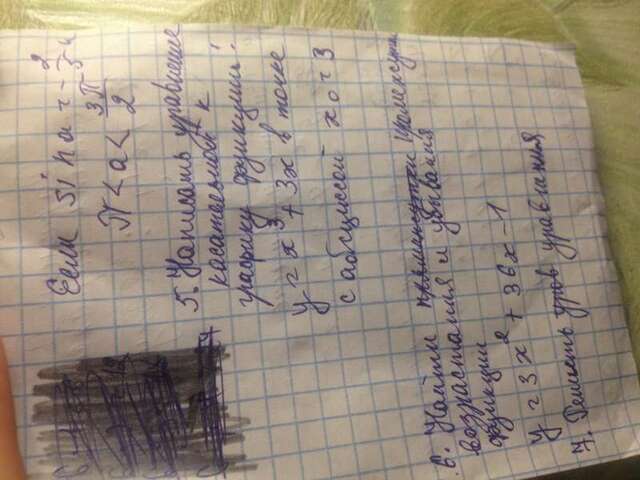 Если sin a = - 2/5 и
π < a < 3π/2
5. Написать уравнение
касательной к
графику функции:
y = x³ + 3x в точке
с абсциссой x₀ = 3
6. Найти промежутки
возрастания и убывания
функции
y = 3x² + 36x - 1
7. Решить уравнения